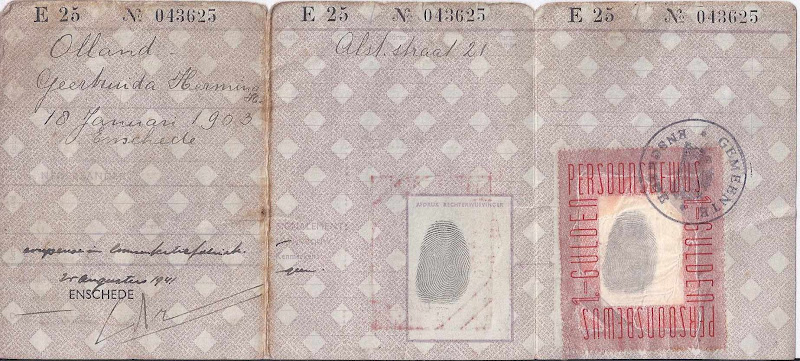 E 25 № 043625
Olland -
Geertruida Hermina
18 Januari 1903
Enschede
25 augustus 1941
ENSCHEDE
E 25 № 043625
Alst.straat 21
AFDRUK RECHTERWIJSVINGER
geen
E 25 № 043625
GEMEENTE ENSCHEDE
PERSOONSBEWIJS
1.-GULDEN
1.-GULDEN
PERSOONSBEWIJS